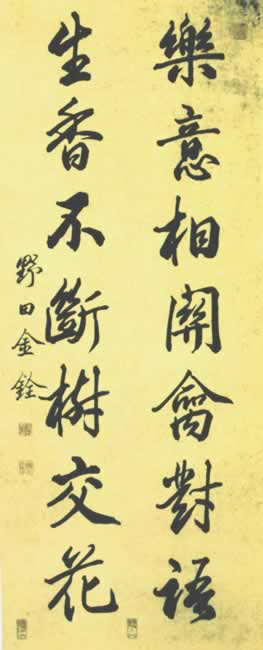 樂意相關禽對語
生香不斷樹交花
野田金銓